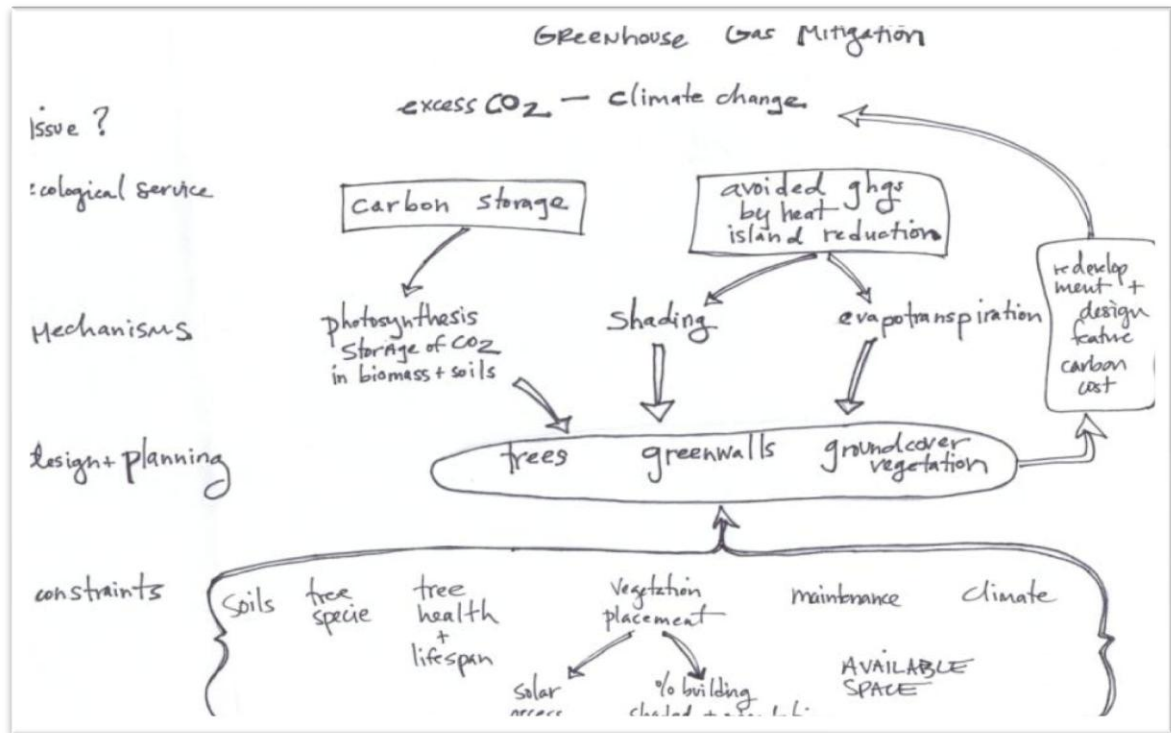 Greenhouse Gas Mitigation
issue ?
excess CO2 — climate change
ecological service
carbon storage
avoided ghgs
by heat
island reduction
redevelop
ment +
design
feature
carbon
cost
Mechanisms
photosynthesis
storage of CO2
in biomass + soils
shading
evapotranspiration
design + planning
trees
greenwalls
groundcover
vegetation
constraints
soils
tree
specie
tree
health
+
lifespan
vegetation
placement
maintnance
climate
solar
% building
AVAILABLE
SPACE